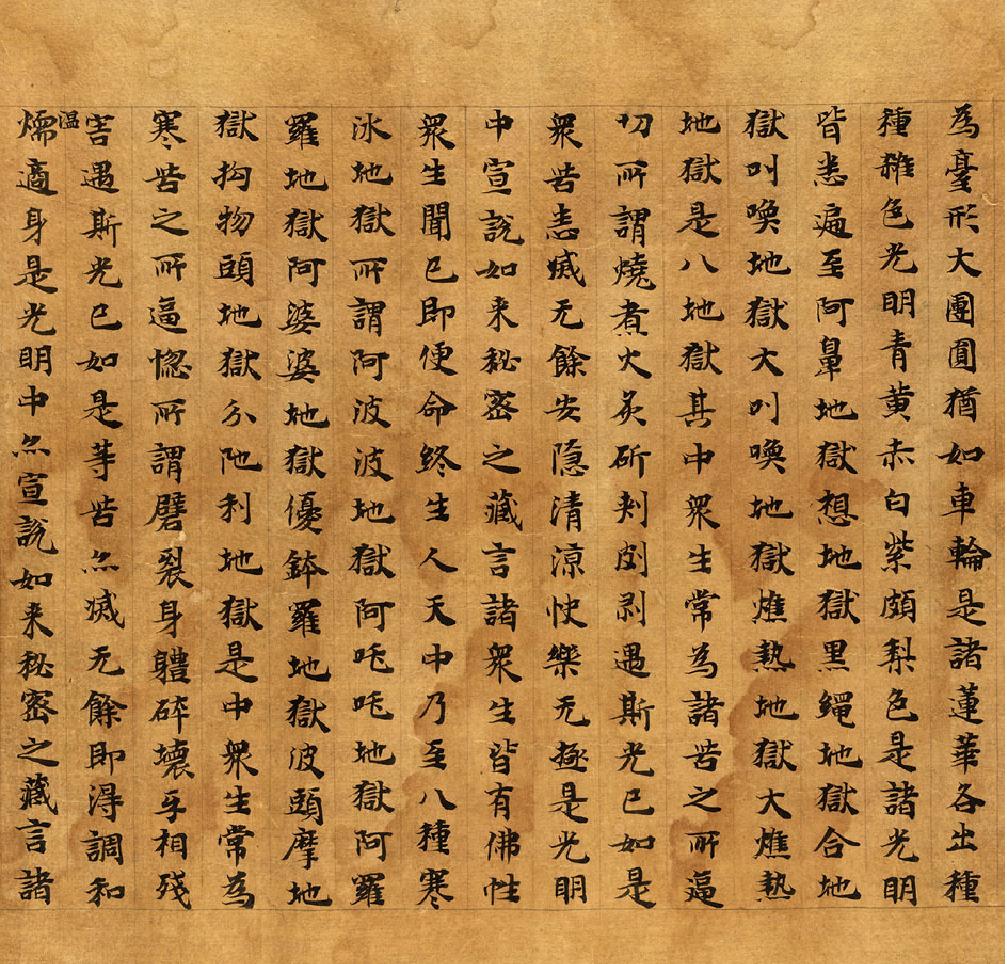 為臺形大團圓猶如車輪是諸蓮華各出種
種雜色光明青黄赤白紫頗梨色是諸光明
皆悉遍至阿鼻地獄想地獄黒繩地獄合地
獄叫喚地獄大叫喚地獄燋熱地獄大燋熱
地獄是八地獄其中衆生常為諸苦之所逼
切所謂燒煮火炙斫刺剥剥遇斯光已如是
衆苦悉滅无餘安隐清涼快樂无極是光明
中宣說如来秘密之藏言諸衆生皆有佛性
衆生聞已即便命終生人天中乃至八種寒
氷地獄所謂阿波波地獄阿吒吒地獄阿羅
羅地獄阿婆婆地獄優鉢羅地獄波頭摩地
獄拘物頭地獄分陁利地獄是中衆生常為
寒苦之所逼惱所謂劈裂身軆碎壞㸦相殘
害遇斯光已如是等苦亦滅无餘即得調和
温煗適身是光明中亦宣說如来秘密之藏言諸